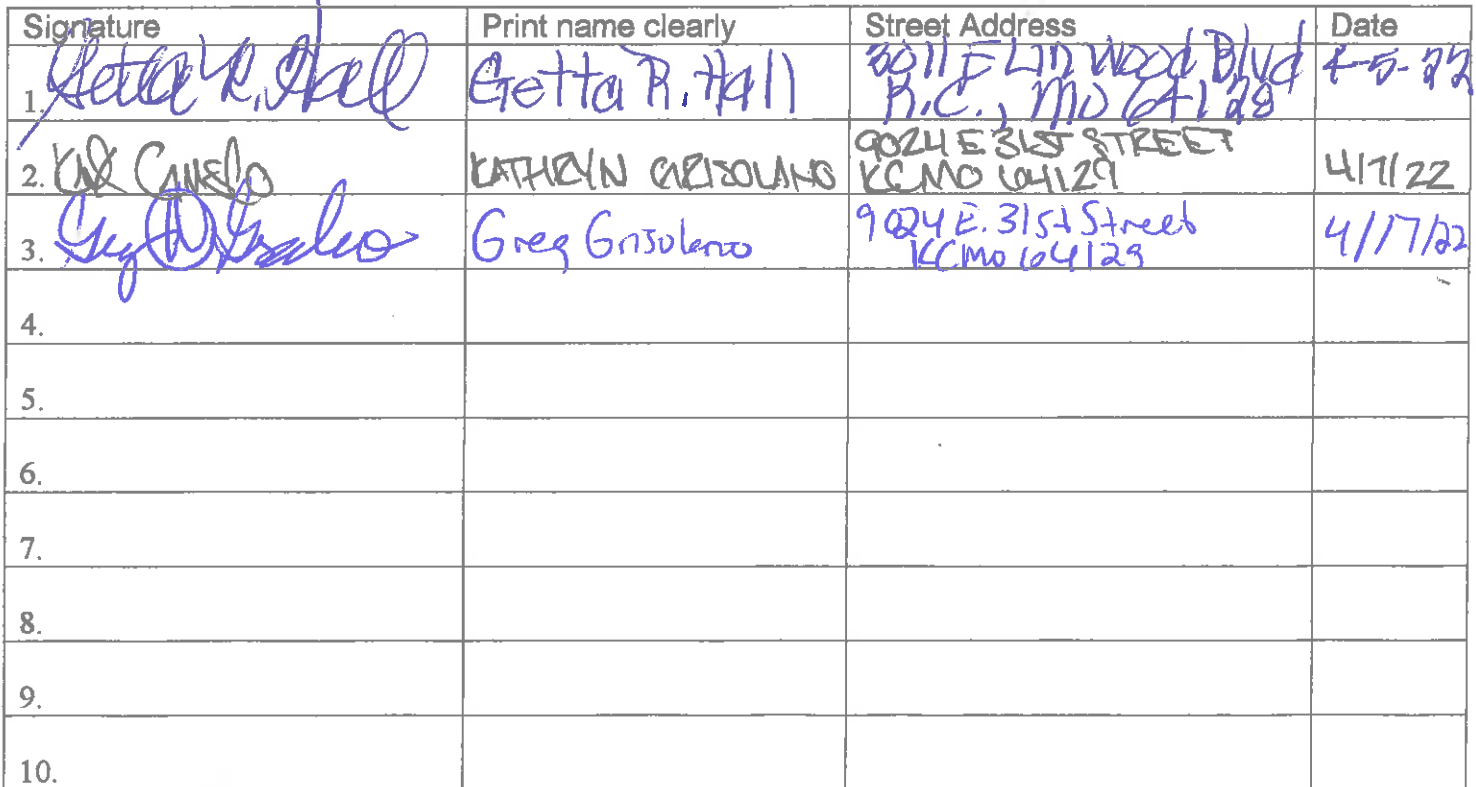 Signature Print name clearly Street Address Date
1. Getta R. Hall Getta R. Hall 3011 E Lin Wood Blvd 4-5-22
K.C., Mo 64128
2. KATHRYN GRISOLANO 9024 E 31ST STREET 4/7/22
KCMO 64129
3. Greg Grisolano 9024 E. 31st Street 4/17/22
KCMo 64129
4.
5.
6.
7.
8.
9.
10.